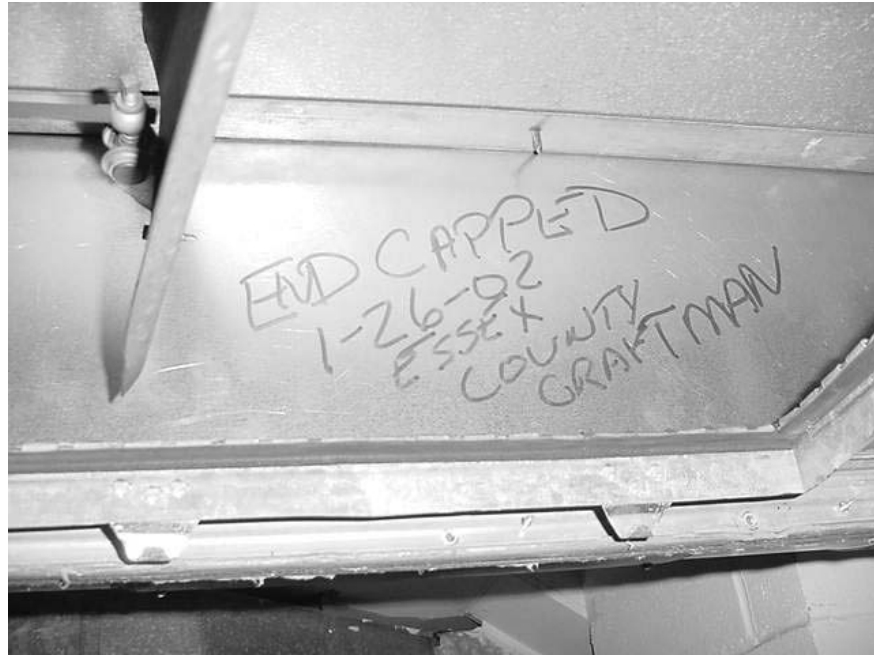 END CAPPED
1-26-02
ESSEX
COUNTY
CRAFTMAN